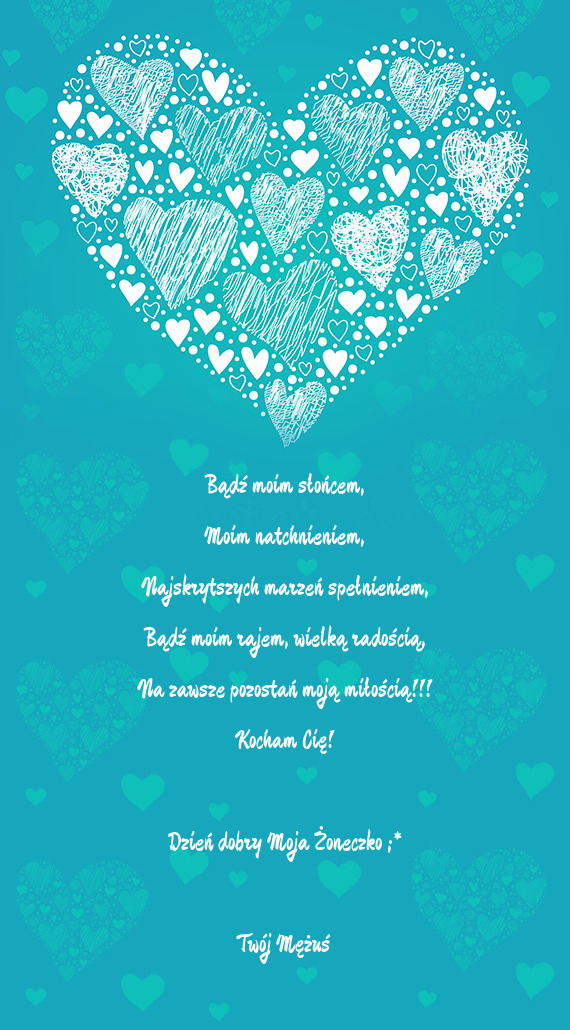 Bądź moim słońcem,
Moim natchnieniem,
Najskrytszych marzeń spełnieniem,
Bądź moim rajem, wielką radością,
Na zawsze pozostań moją miłością!!!
Kocham Cię!
Dzień dobry Moja Żoneczko ;*
Twój Mężuś